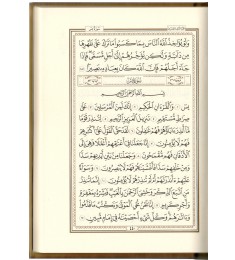 وَلَوْ يُؤَاخِذُ اللَّهُ النَّاسَ بِمَا كَسَبُوا مَا تَرَكَ عَلَىٰ ظَهْرِهَا
مِنْ دَابَّةٍ وَلَٰكِنْ يُؤَخِّرُهُمْ إِلَىٰ أَجَلٍ مُسَمًّى فَإِذَا
جَاءَ أَجَلُهُمْ فَإِنَّ اللَّهَ كَانَ بِعِبَادِهِ بَصِيرًا
بِسْمِ اللَّهِ الرَّحْمَٰنِ الرَّحِيمِ
يسٓ وَالْقُرْآنِ الْحَكِيمِ إِنَّكَ لَمِنَ الْمُرْسَلِينَ عَلَىٰ
صِرَاطٍ مُسْتَقِيمٍ تَنْزِيلَ الْعَزِيزِ الرَّحِيمِ لِتُنْذِرَ قَوْمًا
مَا أُنْذِرَ آبَاؤُهُمْ فَهُمْ غَافِلُونَ لَقَدْ حَقَّ الْقَوْلُ عَلَىٰ أَكْثَرِهِمْ
فَهُمْ لَا يُؤْمِنُونَ إِنَّا جَعَلْنَا فِي أَعْنَاقِهِمْ أَغْلَالًا فَهِيَ إِلَى
الْأَذْقَانِ فَهُمْ مُقْمَحُونَ وَجَعَلْنَا مِنْ بَيْنِ أَيْدِيهِمْ سَدًّا
وَمِنْ خَلْفِهِمْ سَدًّا فَأَغْشَيْنَاهُمْ فَهُمْ لَا يُبْصِرُونَ وَسَوَاءٌ
عَلَيْهِمْ أَأَنْذَرْتَهُمْ أَمْ لَمْ تُنْذِرْهُمْ لَا يُؤْمِنُونَ إِنَّمَا تُنْذِرُ
مَنِ اتَّبَعَ الذِّكْرَ وَخَشِيَ الرَّحْمَٰنَ بِالْغَيْبِ فَبَشِّرْهُ بِمَغْفِرَةٍ
وَأَجْرٍ كَرِيمٍ إِنَّا نَحْنُ نُحْيِي الْمَوْتَىٰ وَنَكْتُبُ مَا قَدَّمُوا
وَآثَارَهُمْ وَكُلَّ شَيْءٍ أَحْصَيْنَاهُ فِي إِمَامٍ مُبِينٍ